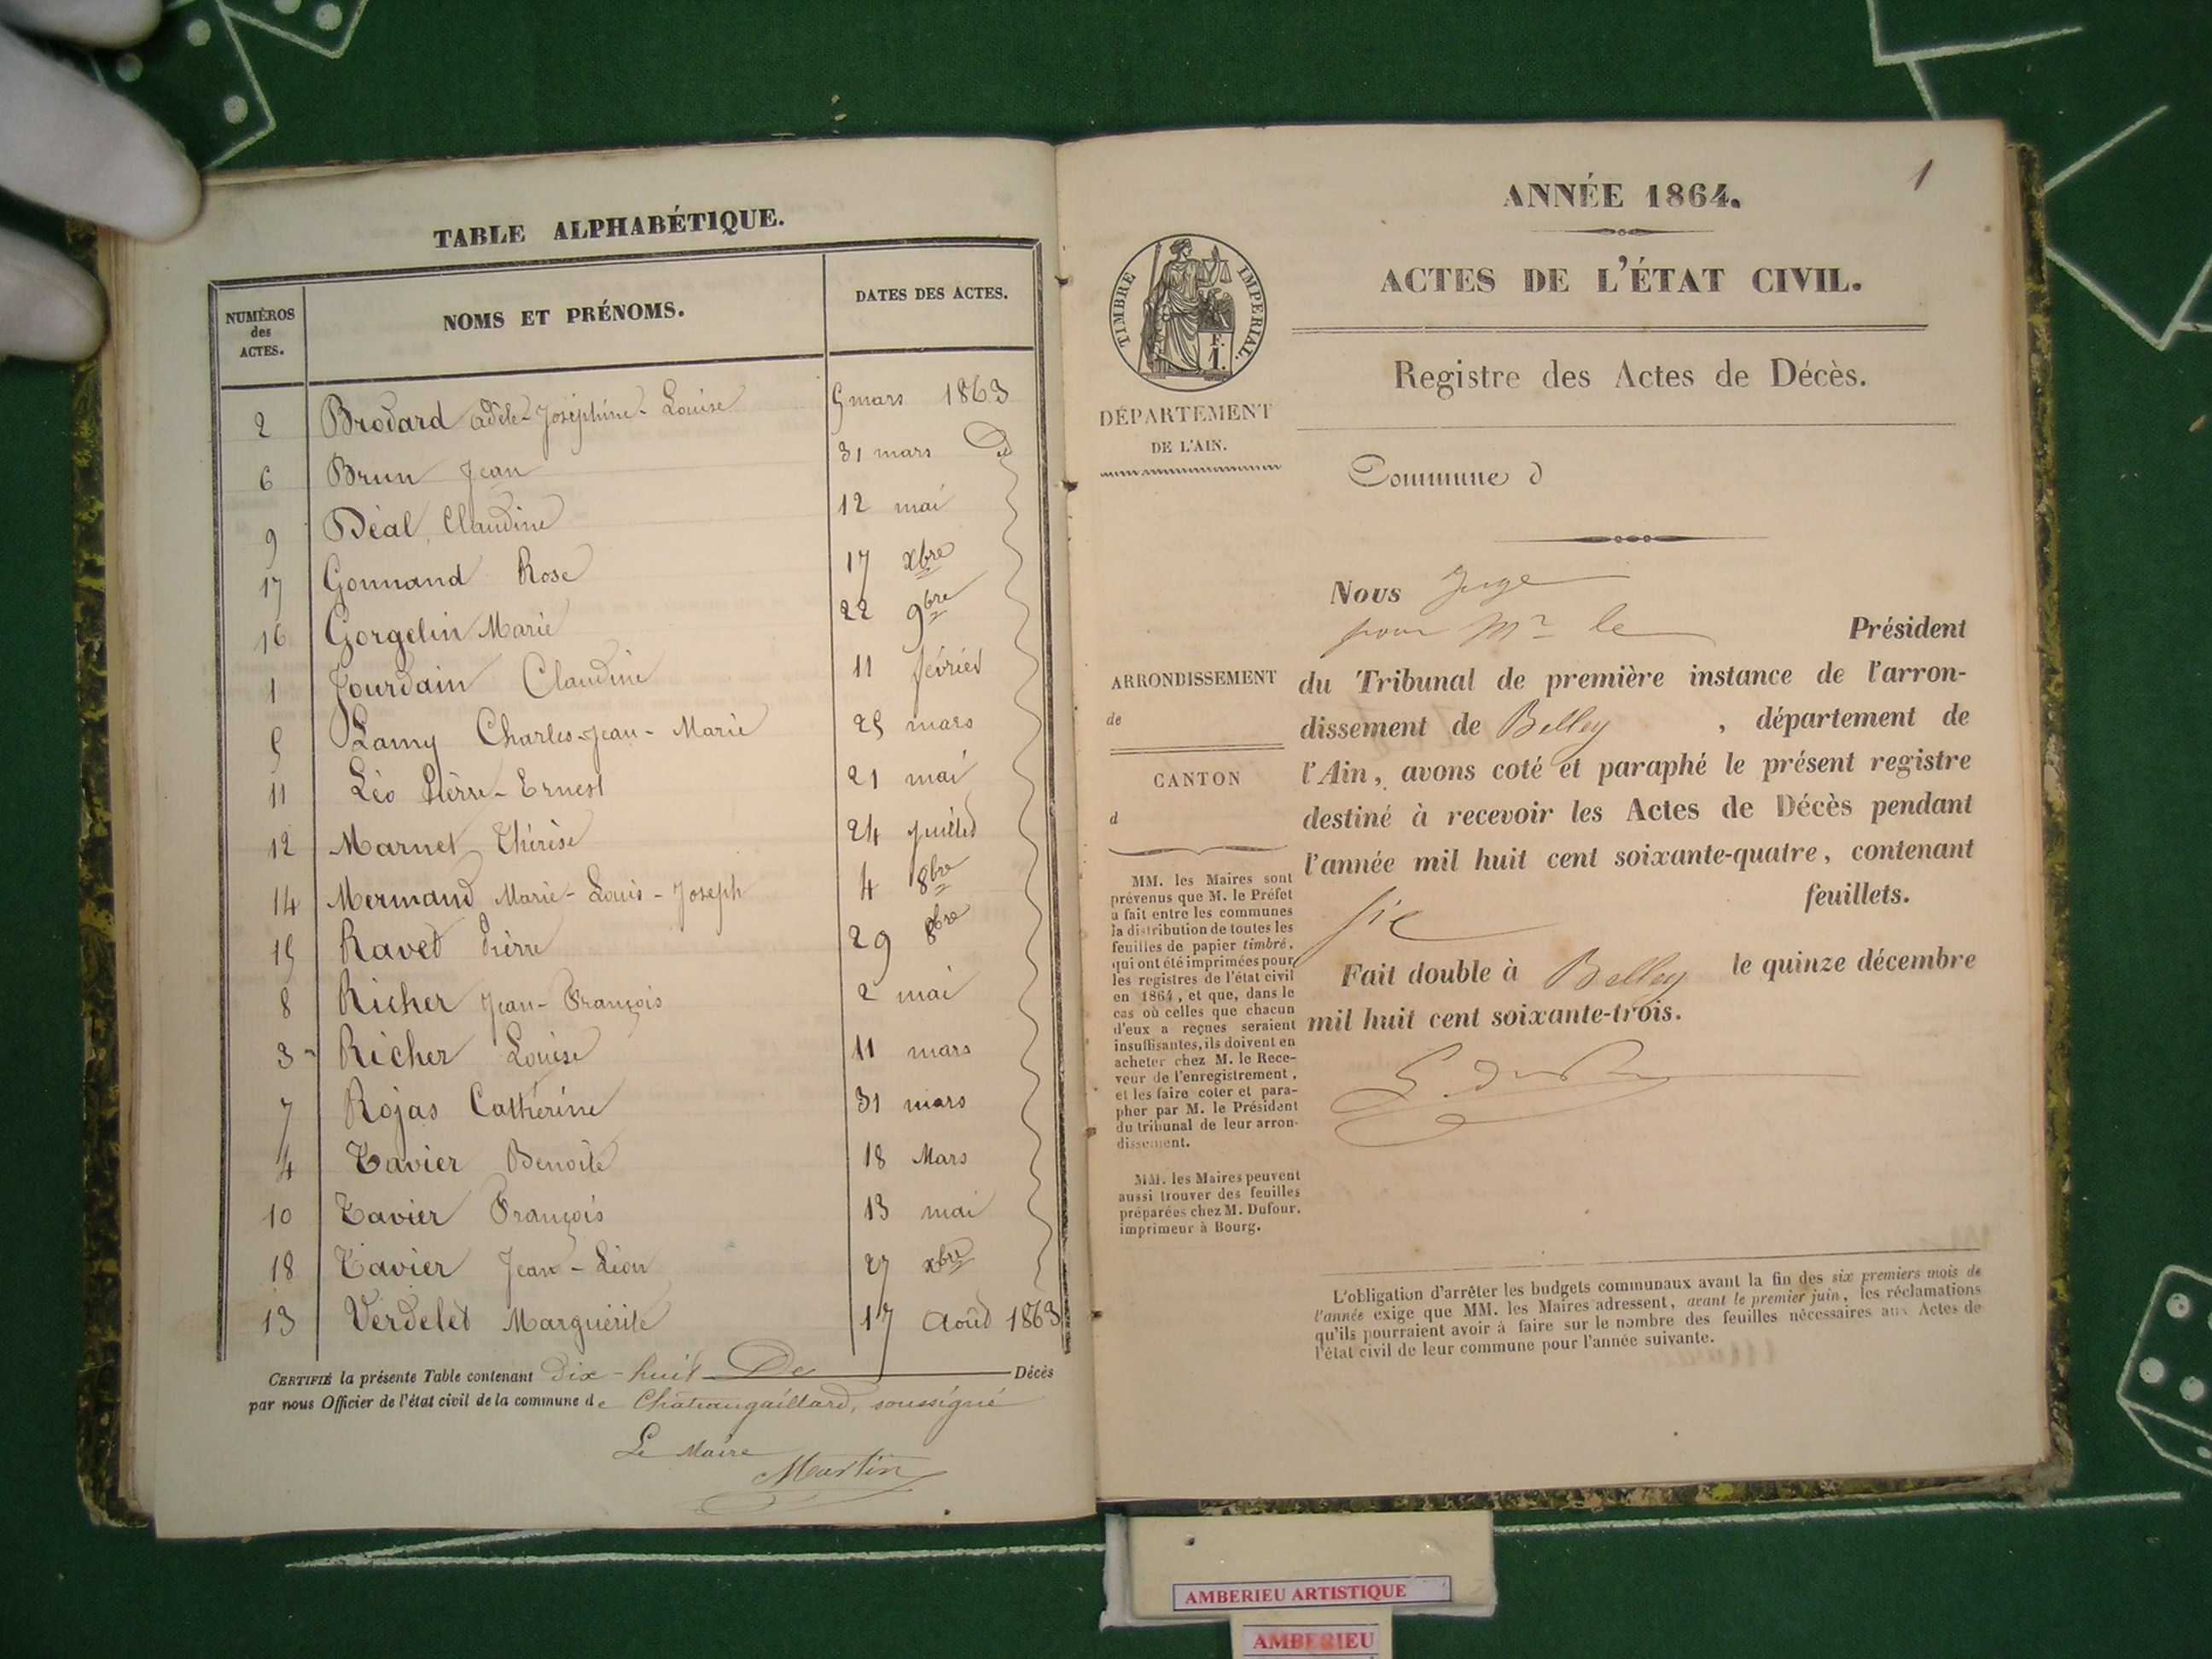 TABLE ALPHABÉTIQUE.
NUMÉROS des ACTES.
NOMS ET PRÉNOMS.
DATES DES ACTES.
2 Brodard Adèle-Joséphine-Louise 5 mars 1863
6 Brun Jean 31 mars D
9 Déal Claudine 12 mai
17 Gonnand Rose 17 xbre
16 Gorgelin Marie 22 9bre
1 Jourdain Claudine 11 février
5 Lamy Charles-Jean-Marie 25 mars
11 Léo Pierre-Ernest 21 mai
12 Marnet Thérèse 24 juillet
14 Mermand Marie-Louis-Joseph 4 8bre
15 Ravet Pierre 29 8bre
8 Richer Jean-François 2 mai
3 Richer Louise 11 mars
7 Rojas Catherine 31 mars
4 Tavier Benoite 18 Mars
10 Tavier François 13 mai
18 Tavier Jean-Léon 27 xbre
13 Verdelet Marguerite 17 Août 1863
CERTIFIÉ la présente Table contenant Dix-huit De Décès
par nous Officier de l'état civil de la commune de Chateaugaillard, soussigné
Le Maire
Martin
1
ANNÉE 1864.
ACTES DE L'ÉTAT CIVIL.
TIMBRE IMPERIAL.
F.
1.
Registre des Actes de Décès.
DÉPARTEMENT
DE L'AIN.
Commune d
Nous Juge
pour Mr le Président
ARRONDISSEMENT
de
CANTON
d
du Tribunal de première instance de l'arron-
dissement de Belley, département de
l'Ain, avons coté et paraphé le présent registre
destiné à recevoir les Actes de Décès pendant
l'année mil huit cent soixante-quatre, contenant
six feuillets.
Fait double à Belley le quinze décembre
mil huit cent soixante-trois.
MM. les Maires sont
prévenus que M. le Préfet
a fait entre les communes
la distribution de toutes les
feuilles de papier timbré,
qui ont été imprimées pour
les registres de l'état civil
en 1864, et que, dans le
cas où celles que chacun
d'eux a reçues seraient
insuffisantes, ils doivent en
acheter chez M. le Rece-
veur de l'enregistrement,
et les faire coter et para-
pher par M. le Président
du tribunal de leur arron-
dissement.
MM. les Maires peuvent
aussi trouver des feuilles
préparées chez M. Dufour,
imprimeur à Bourg.
L'obligation d'arrêter les budgets communaux avant la fin des six premiers mois de
l'année exige que MM. les Maires adressent, avant le premier juin, les réclamations
qu'ils pourraient avoir à faire sur le nombre des feuilles nécessaires aux Actes de
l'état civil de leur commune pour l'année suivante.
AMBERIEU ARTISTIQUE
AMBERIEU